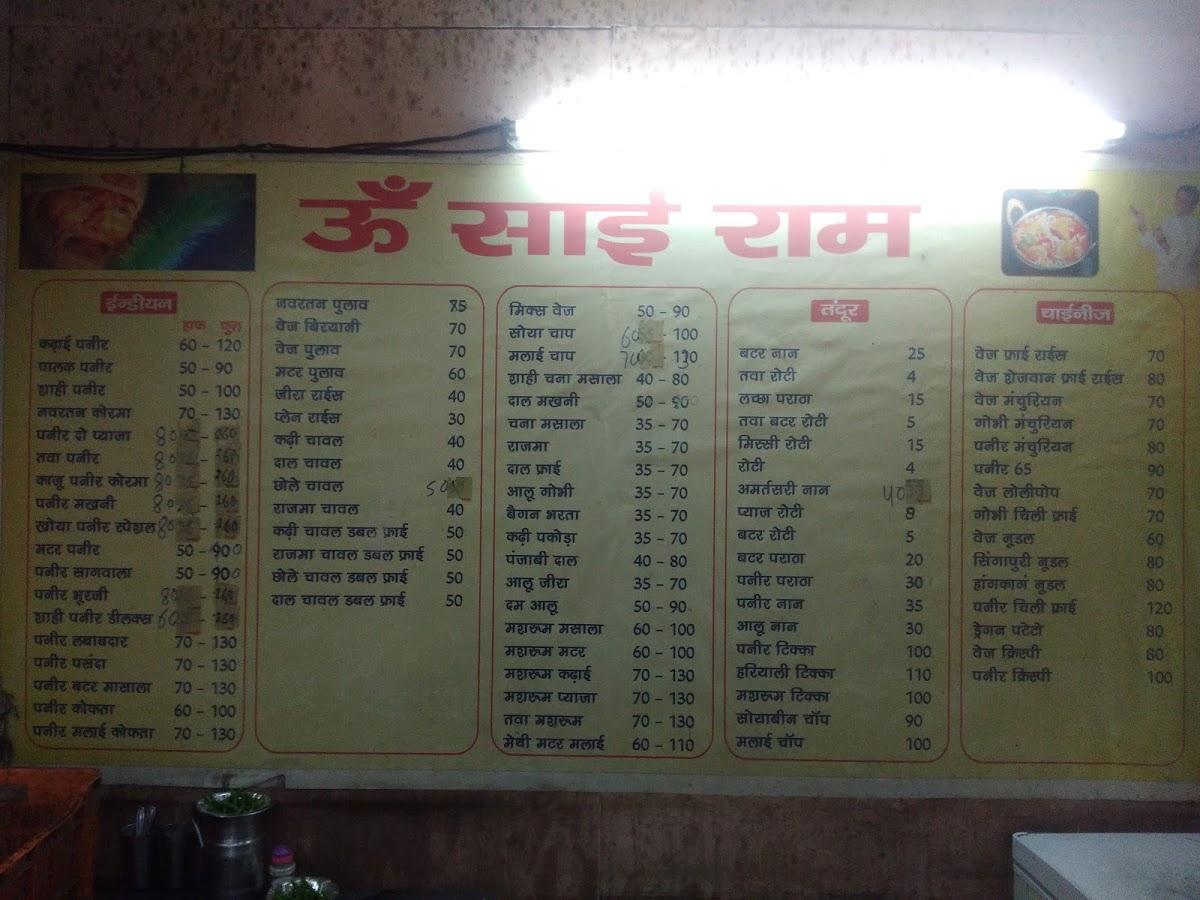 ऊँ साई राम
ईन्डीयन
हाफ फुल
कढ़ाई पनीर 60 - 120
पालक पनीर 50 - 90
शाही पनीर 50 - 100
नवरतन कोरमा 70 - 130
पनीर दो प्याजा 80 - 160
तवा पनीर 80 - 160
काजू पनीर कोरमा 80 - 160
पनीर मखनी 80 - 160
खोया पनीर स्पेशल 80 - 160
मटर पनीर 50 - 90
पनीर सागवाला 50 - 90
पनीर भूरजी 80 - 160
शाही पनीर डीलक्स
पनीर लबाबदार 70 - 130
पनीर पसंदा 70 - 130
पनीर बटर मासाला 70 - 130
पनीर कोफता 60 - 100
पनीर मलाई कोफता 70 - 130
नवरतन पुलाव
वेज बिरयानी 70
वेज पुलाव 70
मटर पुलाव 60
जीरा राईस 40
प्लेन राईस 30
कढ़ी चावल 40
दाल चावल 40
छोले चावल 50
राजमा चावल 40
कढ़ी चावल डबल फ्राई 50
राजमा चावल डबल फ्राई 50
छोले चावल डबल फ्राई 50
दाल चावल डबल फ्राई 50
मिक्स वेज 50 - 90
सोया चाप 60 - 100
मलाई चाप 70 - 130
शाही चना मसाला 40 - 80
दाल मखनी 50 - 90
चना मसाला 35 - 70
राजमा 35 - 70
दाल फ्राई 35 - 70
आलू गोभी 35 - 70
बैगन भरता 35 - 70
कढ़ी पकोड़ा 35 - 70
पंजाबी दाल 40 - 80
आलू जीरा 35 - 70
दम आलू 50 - 90
मशरूम मसाला 60 - 100
मशरूम मटर 60 - 100
मशरूम कढ़ाई 70 - 130
मशरूम प्याजा 70 - 130
तवा मशरूम 70 - 130
मेथी मटर मलाई 60 - 110
तंदूर
बटर नान 25
तवा रोटी 4
लच्छा पराठा 15
तवा बटर रोटी 5
मिस्सी रोटी 15
रोटी 4
अमर्तसरी नान 40
प्याज रोटी 8
बटर रोटी 5
बटर पराठा 20
पनीर पराठा 30
पनीर नान 35
आलू नान 30
पनीर टिक्का 100
हरियाली टिक्का 110
मशरूम टिक्का 100
सोयाबीन चॉप 90
मलाई चॉप 100
चाईनीज
वेज फ्राई राईस 70
वेज शेजवान फ्राई राईस 80
वेज मंचुरियन 70
गोभी मंचुरियन 70
पनीर मंचुरियन 80
पनीर 65 90
वेज लोलीपोप 70
गोभी चिली फ्राई 70
वेज नूडल 60
सिंगापुरी नूडल 80
हांगकागं नूडल 80
पनीर चिली फ्राई 120
ड्रेगन पटेटो 80
वेज क्रिस्पी 80
पनीर क्रिस्पी 100